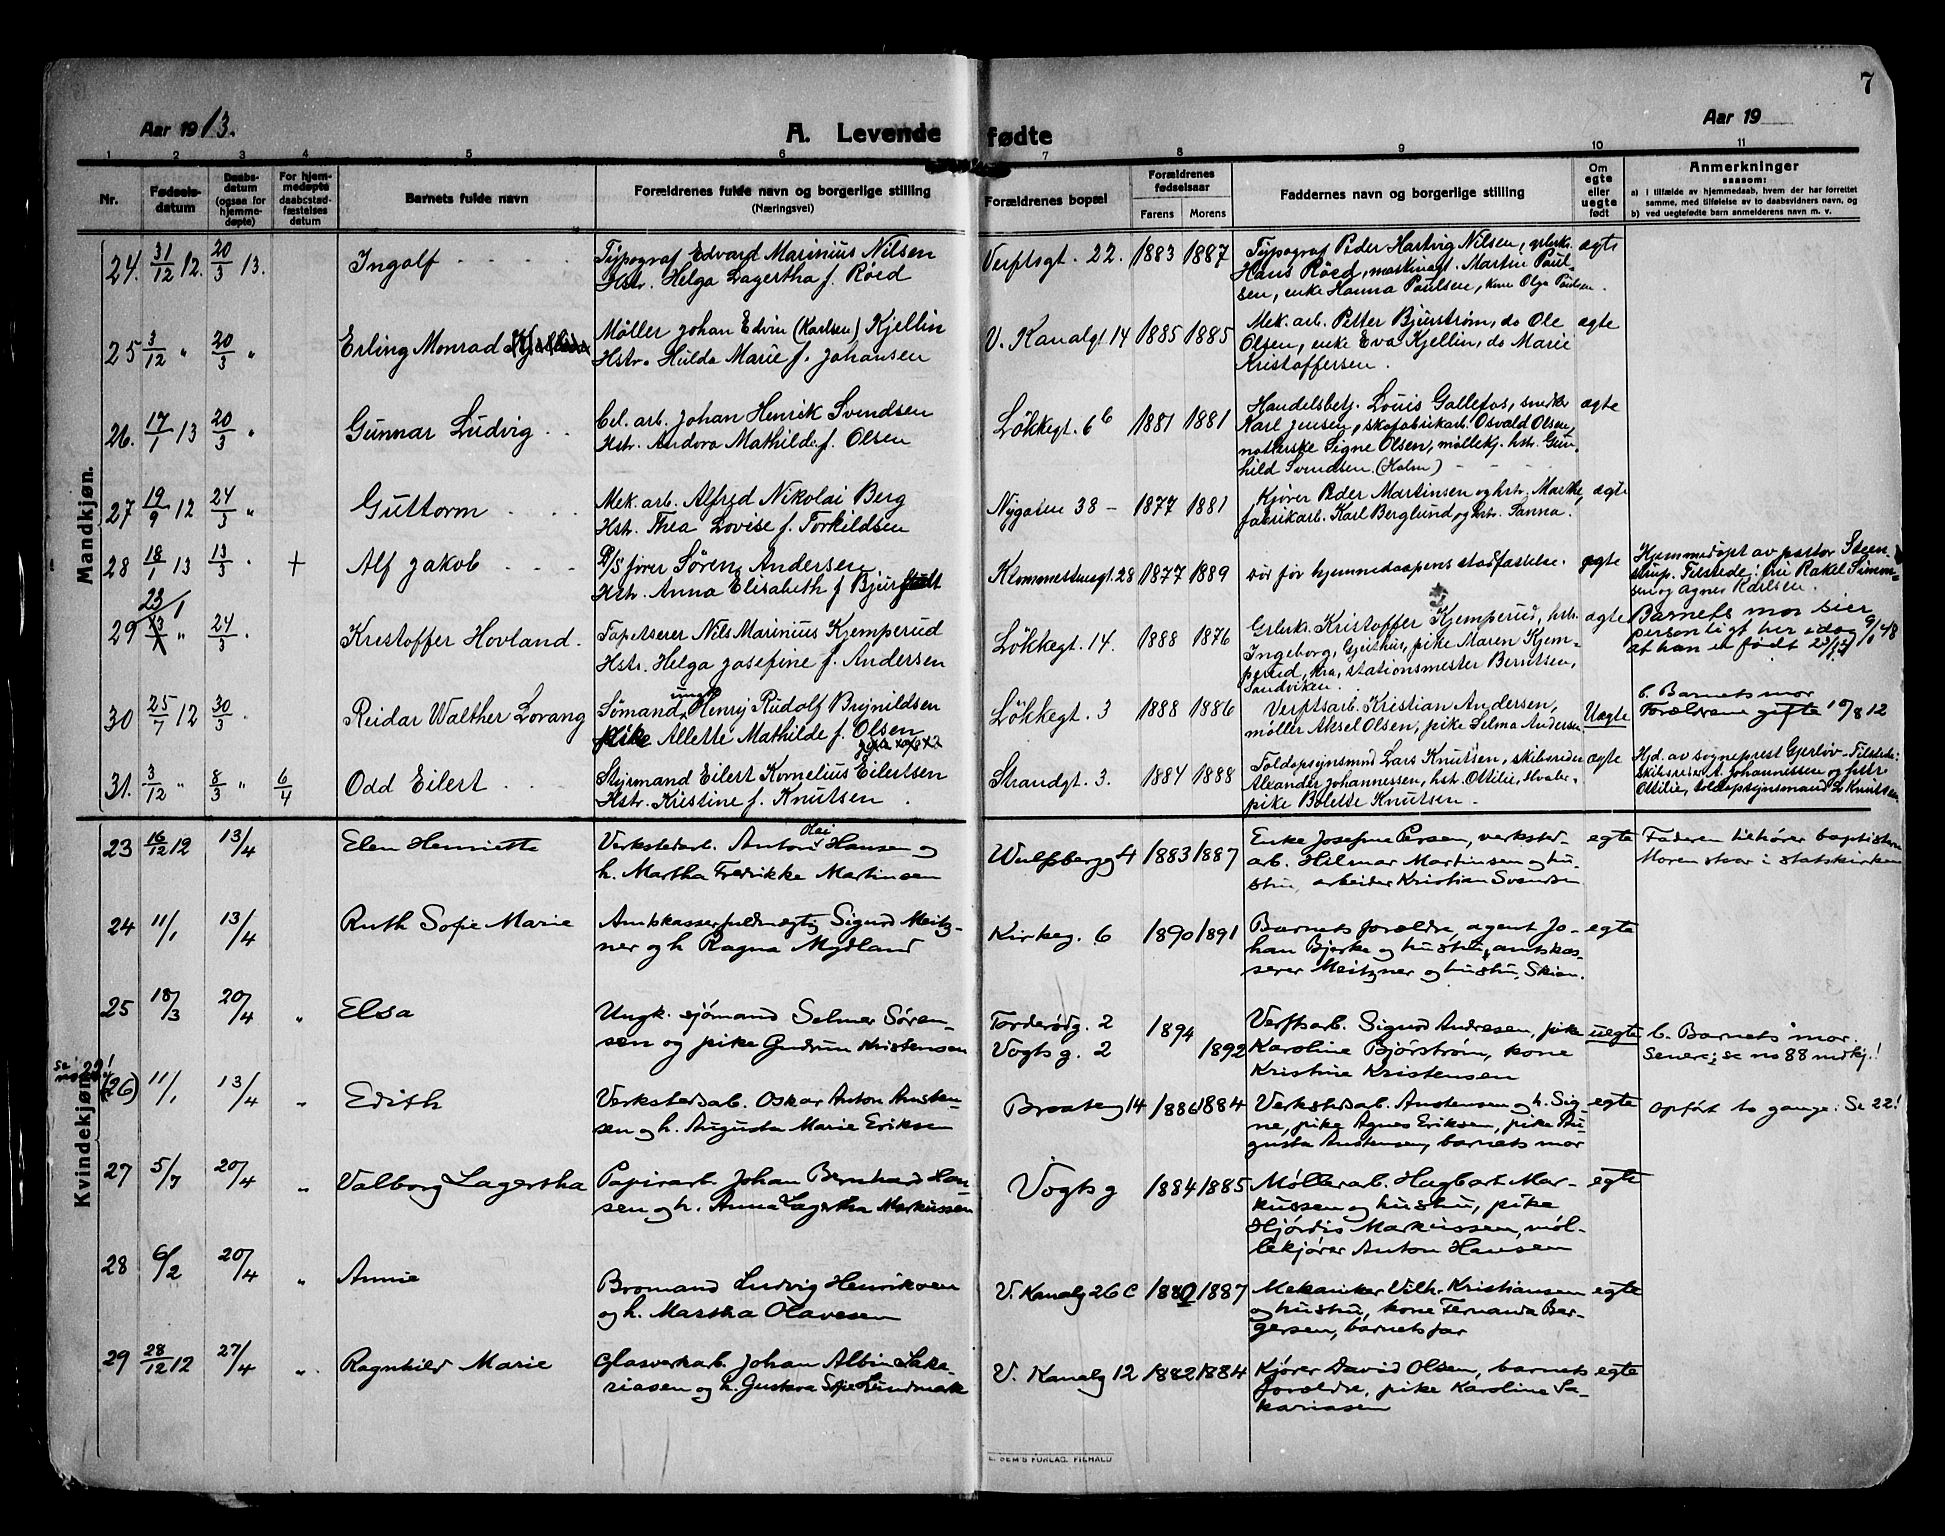 7
Aar 1913.
A. Levende fødte
Aar 19
1 2 3 4 5 6 7 8 9 10 11
Nr.
Fødselsdatum
Daabsdatum (ogsaa for hjemmedøpte)
For hjemmedøpte daabsstadfæstelses datum
Barnets fulde navn
Forældrenes fulde navn og borgerlige stilling
(Næringsvei)
Forældrenes bopæl
Forældrenes fødselsaar
Farens Morens
Faddernes navn og borgerlige stilling
Om egte eller uegte født
Anmerkninger
saasom:
a) i tilfælde av hjemmedaab, hvem der har forrettet samme, med tilføielse av to daabsvidners navn, og
b) ved uegtefødte barn anmelderens navn m. v.
Mandkjøn.
24. 31/12 12. 20/3 13. Ingolf
Typograf Edvard Marinius Nilsen
Hstr. Helga Lagertha f. Röed
Verftsgt. 22. 1883 1887
Typograf Peder Hartvig Nilsen, grlerk.
Hans Röed, maskinagt. Martin Paul-
sen, enke Hanna Paulsen, kone Olga Paulsen.
ægte
25 3/12 " 20/3 " Erling Monrad
Møller Johan Edvin (Karlsen) Kjellin
Hstr. Hulda Marie f. Johansen
V. Kanalgt 14 1885 1885
Mek. arb. Petter Bjurstrøm, do Ole
Olsen, enke Eva Kjellin, do Marie
Kristoffersen.
ægte
26. 17/1 13 20/3 " Gunnar Ludvig
Cel. arb. Johan Henrik Svendsen
Hstr. Andora Mathilde f. Olsen
Løkkegt. 6b 1881 1881
Handelsbetj. Louis Gallefos, snedker
Karl Jensen, skofabrikarb. Osvald Olsen,
Signe Olsen, møllekj. hstr. Gun-
hild Svendsen (Holm)
ægte
27 19/9 12 24/3 " Guttorm
Mek. arb. Alfred Nikolai Berg
Hstr. Thea Lovise f. Torkildsen
Nygaten 38 - 1877 1881
Kjører Peder Martinsen og hst. Marthe,
fabrikarb. Karl Berglund og hstr. Sanna.
ægte
28 18/1 13 13/3 + Alf Jakob
D/S fører Sören Andersen
Hstr. Anna Elisabeth f Bjur
Kommestuegt. 28 1877 1889
Død før hjemmedaapens stadfæstelse.
ægte
Hjemmedøpt av pastor Steen-
strup. Tilstede: fru Rakel Simon-
sen og Agnes Karlsen.
23/1
29 " 24/3 Kristoffer Hovland.
Tapetserer Nils Marinius Kjemperud
Hstr. Helga Josefine f. Andersen
Løkkegt. 14. 1888 1876
Grlerk. Kristoffer Kjemperud, hstr.
Ingeborg, Gjuthus, pike Maren Kjem-
perud, Kra, stationsmester Berntsen,
Sandviken.
ægte
Barnets mor sier
personligt her idag 9/1 48
at han er født 23/1
30 25/7 12 30/3 Reidar Walther Lorang
ungk.
Sømand Henry Rudolf Brynildsen
pike Allette Mathilde f. Olsen
Løkkegt. 3 1888 1886
Verftsarb. Kristian Andersen,
møller Aksel Olsen, pike Selma Andersen
Uægte
b. Barnets mor
Forældrene gifte 10/8 12
31. 3/12 " 8/3 " 6/4 Odd Eilert
Styrmand Eilert Kornelius Eilertsen
Hstr. Kristine f. Knutsen.
Strandgt. 3. 1884 1888
Toldopsynsmnd Lars Knutsen, skibsreder
Alexander Johannessen, hst. Ottilie, Hvaler.
pike Bolette Knutsen.
ægte
Hjd. av sogneprest Gjerløv. Tilstede:
Skibsreder A. Johannessen og
Ottilie, toldopsynsmand L. Knutsen.
Kvindekjøn.
23 16/12 12 13/4 Elen Henriette
Olai
Verkstedarb. Anton Hansen og
h. Martha Fredrikke Martinsen
Wulfsbergg 4 1883 1887
Enke Josefine Persen, verksted-
arb. Hilmar Martinsen og hu-
stru, arbeider Kristian Svendsen
egte
Faderen tilhører baptisterne
Moren staar i statskirken
24 11/1 13/4 Ruth Sofie Marie
Amtskasserfuldmegtig Sigurd Meitz-
ner og h Ragna Mydland
Kirkeg. 6 1890 1891
Barnets foreldre, agent Jo-
han Bjerke og hustru, amtskas-
serer Meitzner og hustru, Skien.
egte
25 18/3 20/4 " Elsa
Ungk. sjömand Selmer Sören-
sen og pike Gudrun Kristensen
Torderødg. 2
Vogts g. 2
1894
1892
Verftsarb. Sigurd Andresen, pike
Karoline Bjørstrøm, kone
Kristine Kristensen
uegte
b. Barnets mor.
Senere; se no 88 mdkj.!
Se no 22!
(26) 11/1 13/4 " Edith
Verkstedsarb. Oskar Anton Ansten-
sen og h. Augusta Marie Eriksen
Braateng 14 1886 1884
Verkstedsarb. Anstensen og h. Sig-
ne, pike Agnes Eriksen, pike Au-
gusta Anstensen, barnets mor
egte
Opført to gange. Se 22!
27 5/7 20/4 " Valborg Lagertha
Papirarb. Johan Bernhard Han-
sen og h. Anna Lagertha Markussen
Vogts g 1884 1885
Møllerarb. Hagbart Mar-
kussen og hustru, pike
Hjördis Markussen, möl-
lekjører Anton Hansen
egte
28 6/2 20/4 " Annie
Bromand Ludvig Henriksen
og h. Martha Olavesen
V. Kanalg 26 C 1880 1887
Mekaniker Vilh. Kristiansen
og hustru, kone Fernanda Bør-
gersen, barnets far
egte
29 28/12 12 27/4 " Ragnhild Marie
Glasverkarb. Johan Albin Saka-
riasen og h. Gustava Sofie Lundmark
V. Kanalg 12 1882 1884
Kjører David Olsen, barnets
foreldre, pike Karoline Sa-
kariasen
egte
E. SEM'S FORLAG, F.HALD